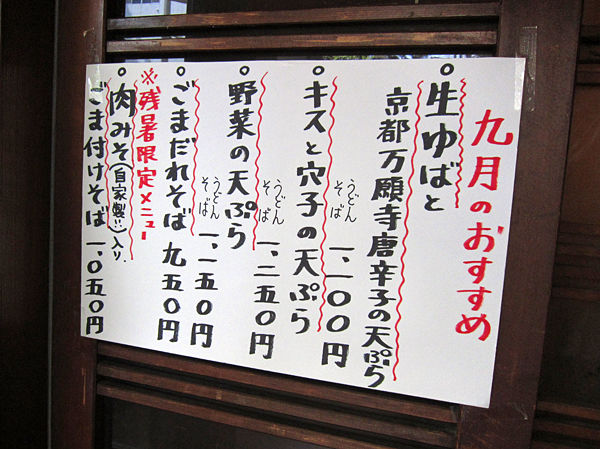 九月のおすすめ
○生ゆばと
京都万願寺唐辛子の天ぷら
うどん
そば 一、一〇〇円
○キスと穴子の天ぷら
うどん
そば 一、二五〇円
○野菜の天ぷら
うどん
そば 一、一五〇円
○ごまだれそば 九五〇円
※残暑限定メニュー
○肉みそ(自家製!!)入り
ごま付けそば 一、〇五〇円